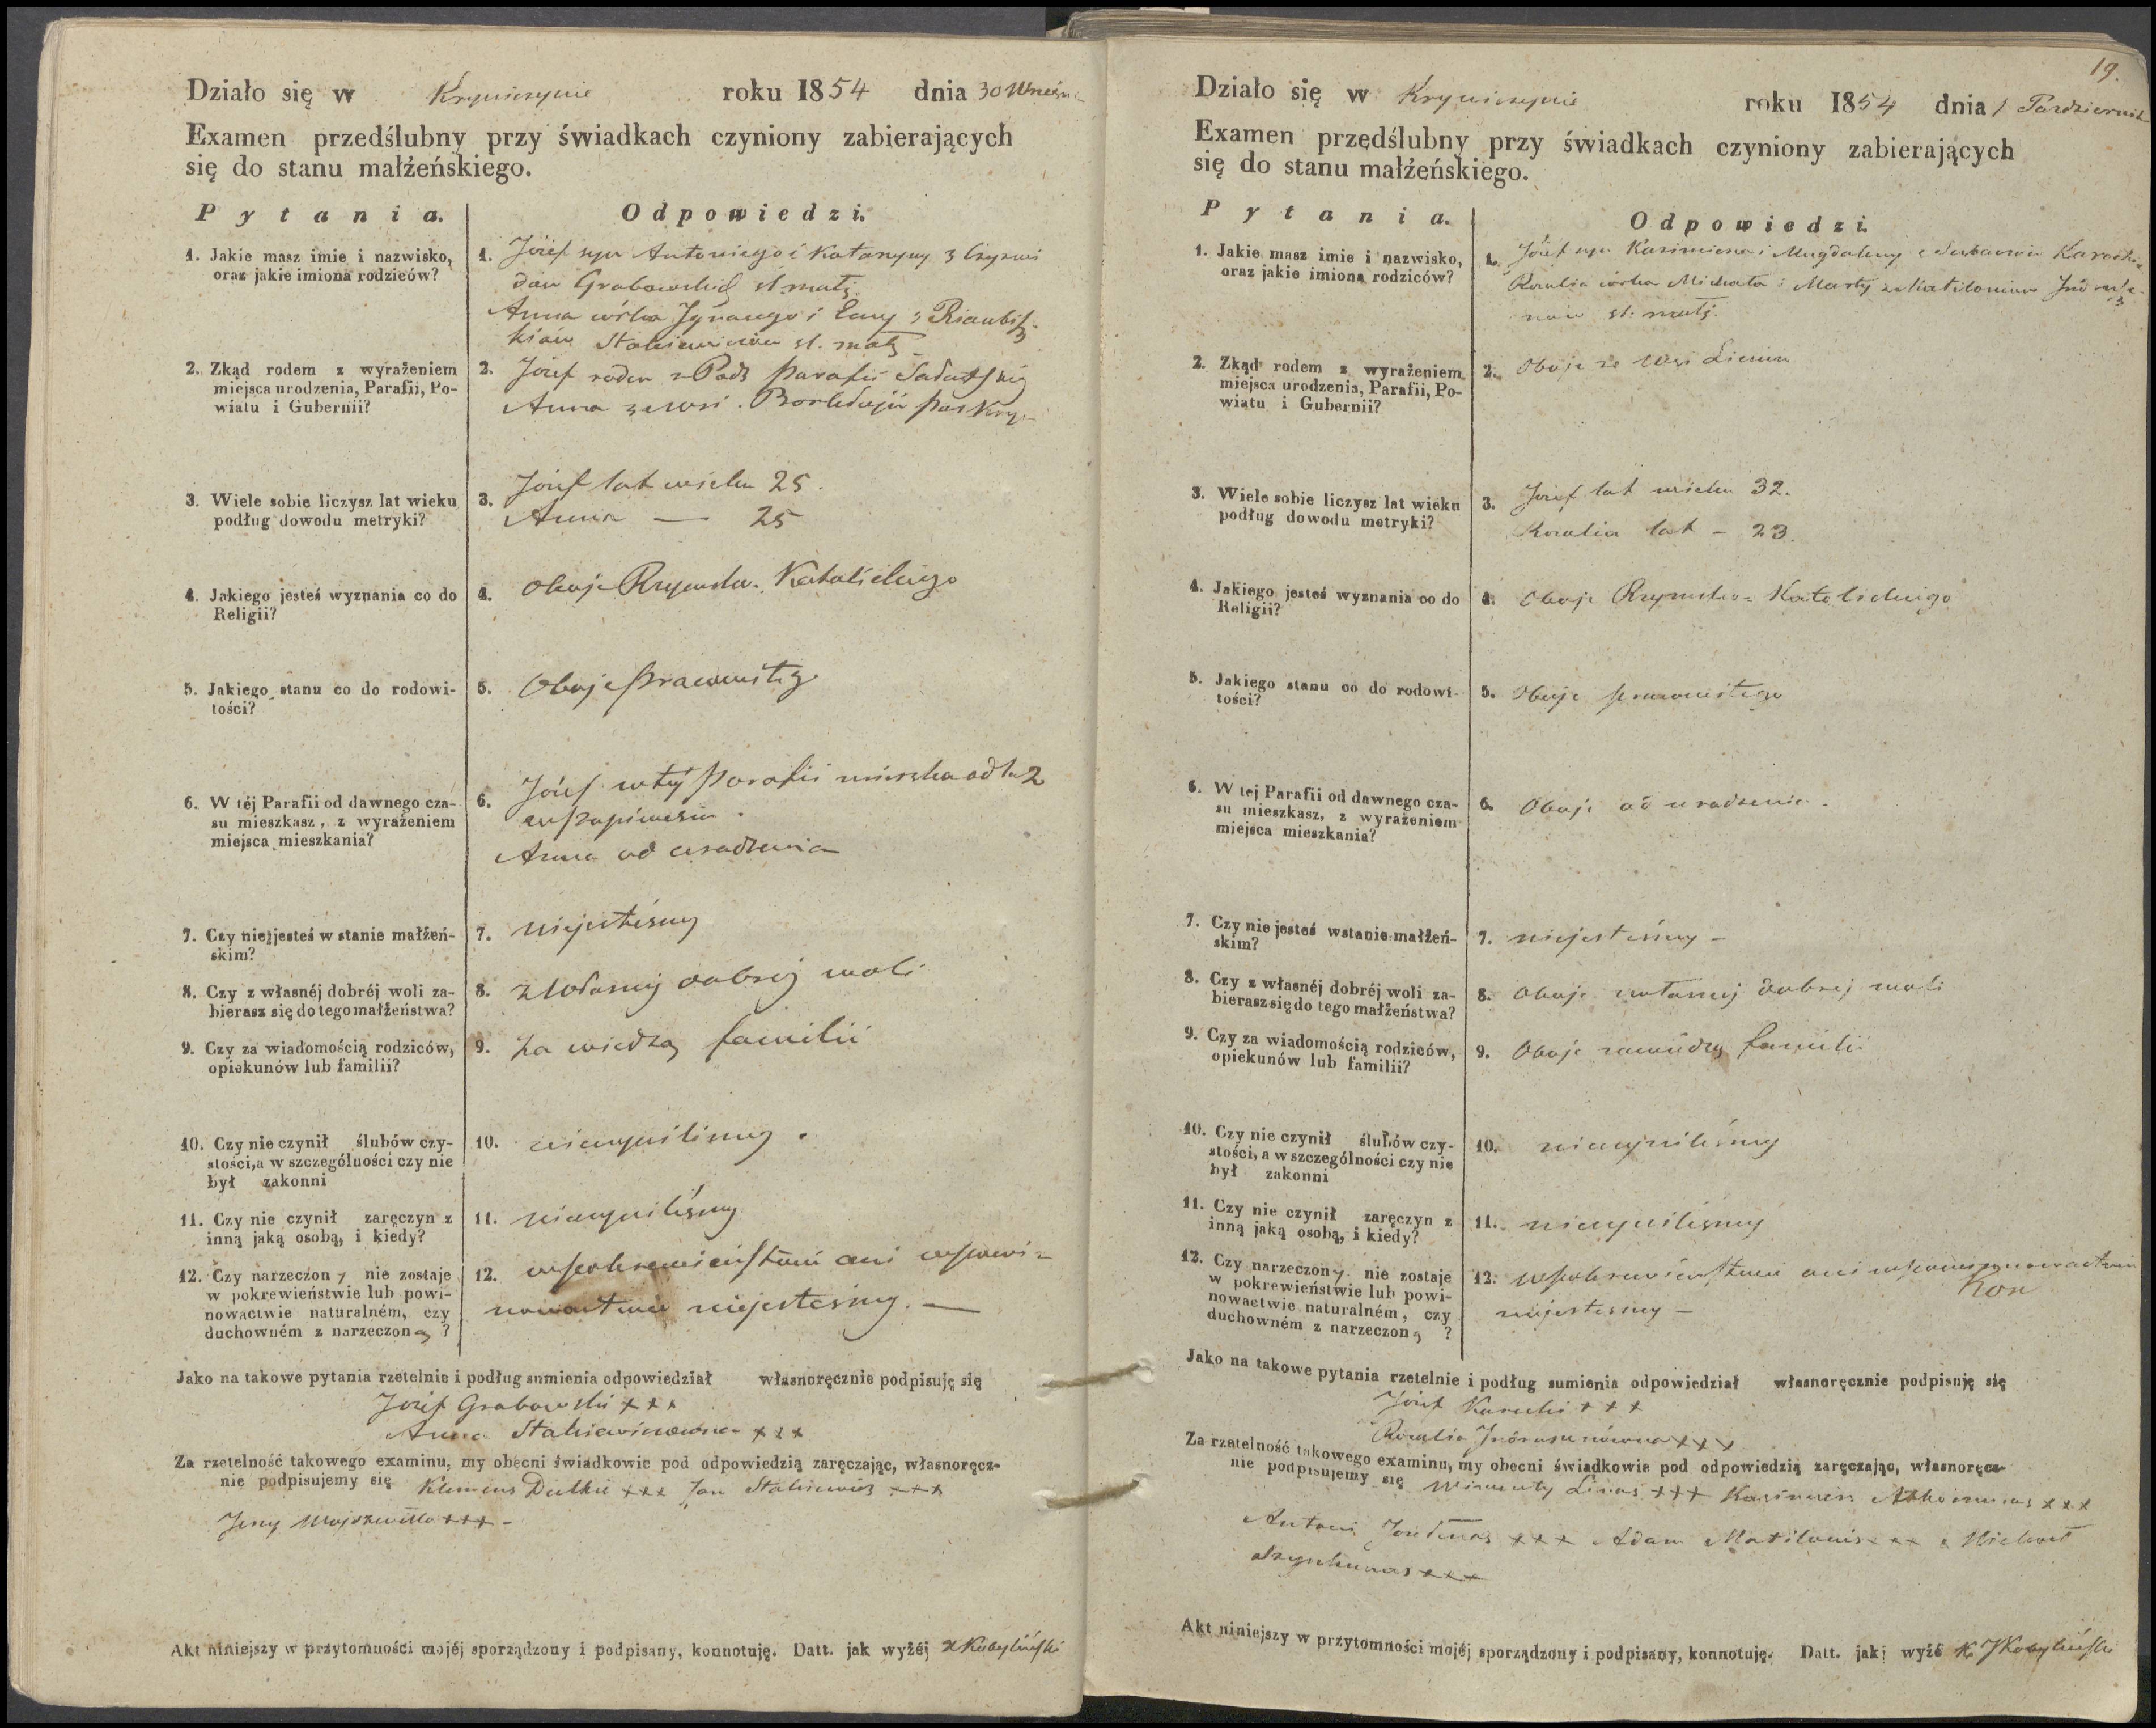 Działo się w Krynicznie roku 1854 dnia 30 Wrześn
Examen przedślubny przy świadkach czyniony zabierających
się do stanu małżeńskiego.
Pytania.
Odpowiedzi.
1. Jakie masz imie i nazwisko,
oraz jakie imiona rodziców?
1. Józef syn Antoniego i Katarzyny z
Grabowskich st. małż.
Anna córka Ignacego i Ewy z
st. małż
2. Zkąd rodem z wyrażeniem
miejsca urodzenia, Parafii, Po-
wiatu i Gubernii?
2. Józef rodem z Parafii
Anna ze wsi par Kry
3. Wiele sobie liczysz lat wieku
podług dowodu metryki?
3. Józef lat wieku 25.
Anna — 25
4. Jakiego jesteś wyznania co do
Religii?
4. Oboje Rzymsko Katolickiego
5. Jakiego stanu co do rodowi-
tości?
5. Oboje prawowitego
6. W téj Parafii od dawnego cza-
su mieszkasz, z wyrażeniem
miejsca mieszkania?
6. Józef w tej Parafii mieszka od lat 2
Anna od urodzenia
7. Czy nie jesteś w stanie małżeń-
skim?
7. niejesteśmy
8. Czy z własnéj dobréj woli za-
bierasz się do tego małżeństwa?
8. z własnej dobrej woli
9. Czy za wiadomością rodziców,
opiekunów lub familii?
9. Za wiedzą familii
10. Czy nie czynił ślubów czy-
stości, a w szczególności czy nie
był zakonni
10. nieczyniliśmy.
11. Czy nie czynił zaręczyn z
inną jaką osobą, i kiedy?
11. nieczyniliśmy
12. Czy narzeczony nie zostaje
w pokrewieństwie lub powi-
nowactwie naturalném, czy
duchowném z narzeczoną ?
12. w pokrewieństwie ani w powi-
nowactwie niejesteśmy. —
Jako na takowe pytania rzetelnie i podług sumienia odpowiedział własnoręcznie podpisuję się
Józef Grabowski +++
Anna Stakiewiczowna +++
Za rzetelność takowego examinu, my obecni świadkowie pod odpowiedzią zaręczając, własnoręcz-
nie podpisujemy się Klemens Dulkie +++ Jan Stakiewicz +++
Jerzy +++ -
Akt niniejszy w przytomności mojéj sporządzony i podpisany, konnotuję. Datt. jak wyżéj X Kobyliński
19.
Działo się w Krynicznie roku 1854 dnia 1 Październik
Examen przedślubny przy świadkach czyniony zabierających
się do stanu małżeńskiego.
Pytania.
Odpowiedzi.
1. Jakie masz imie i nazwisko,
oraz jakie imiona rodziców?
1. Józef syn Kazimierza i Magdaleny z
Rozalia córka Michała i Marty z Matilonisow
st. małż.
2. Zkąd rodem z wyrażeniem
miejsca urodzenia, Parafii, Po-
wiatu i Gubernii?
2. Oboje ze wsi
3. Wiele sobie liczysz lat wieku
podług dowodu metryki?
3. Józef lat wieku 32.
Rozalia lat – 23.
4. Jakiego jesteś wyznania co do
Religii?
4. Oboje Rzymsko-Katolickiego
5. Jakiego stanu co do rodowi-
tości?
5. Oboje prawowitego
6. W tej Parafii od dawnego cza-
su mieszkasz, z wyrażeniem
miejsca mieszkania?
6. Oboje od urodzenia.
7. Czy nie jesteś w stanie małżeń-
skim?
7. niejesteśmy –
8. Czy z własnéj dobréj woli za-
bierasz się do tego małżeństwa?
8. Oboje z własnej dobrej woli
9. Czy za wiadomością rodziców,
opiekunów lub familii?
9. Oboje za wiedzą familii
10. Czy nie czynił ślubów czy-
stości, a w szczególności czy nie
był zakonni
10. nieczyniliśmy
11. Czy nie czynił zaręczyn z
inną jaką osobą, i kiedy?
11. nieczyniliśmy
12. Czy narzeczony nie zostaje
w pokrewieństwie lub powi-
nowactwie naturalném, czy
duchowném z narzeczoną ?
12. w pokrewieństwie ani w powinowactwie
niejesteśmy –
Jako na takowe pytania rzetelnie i podług sumienia odpowiedział własnoręcznie podpisuję się
Józef Karecki +++
Rozalia +++
Za rzetelność takowego examinu, my obecni świadkowie pod odpowiedzią zaręczając, własnoręcz-
nie podpisujemy się Wincenty Linas +++ Kazimierz +++
Antoni +++ Adam Matilonis +++ Michał
+++
Akt niniejszy w przytomności mojéj sporządzony i podpisany, konnotuję. Datt. jak wyżé X J Kobyliński